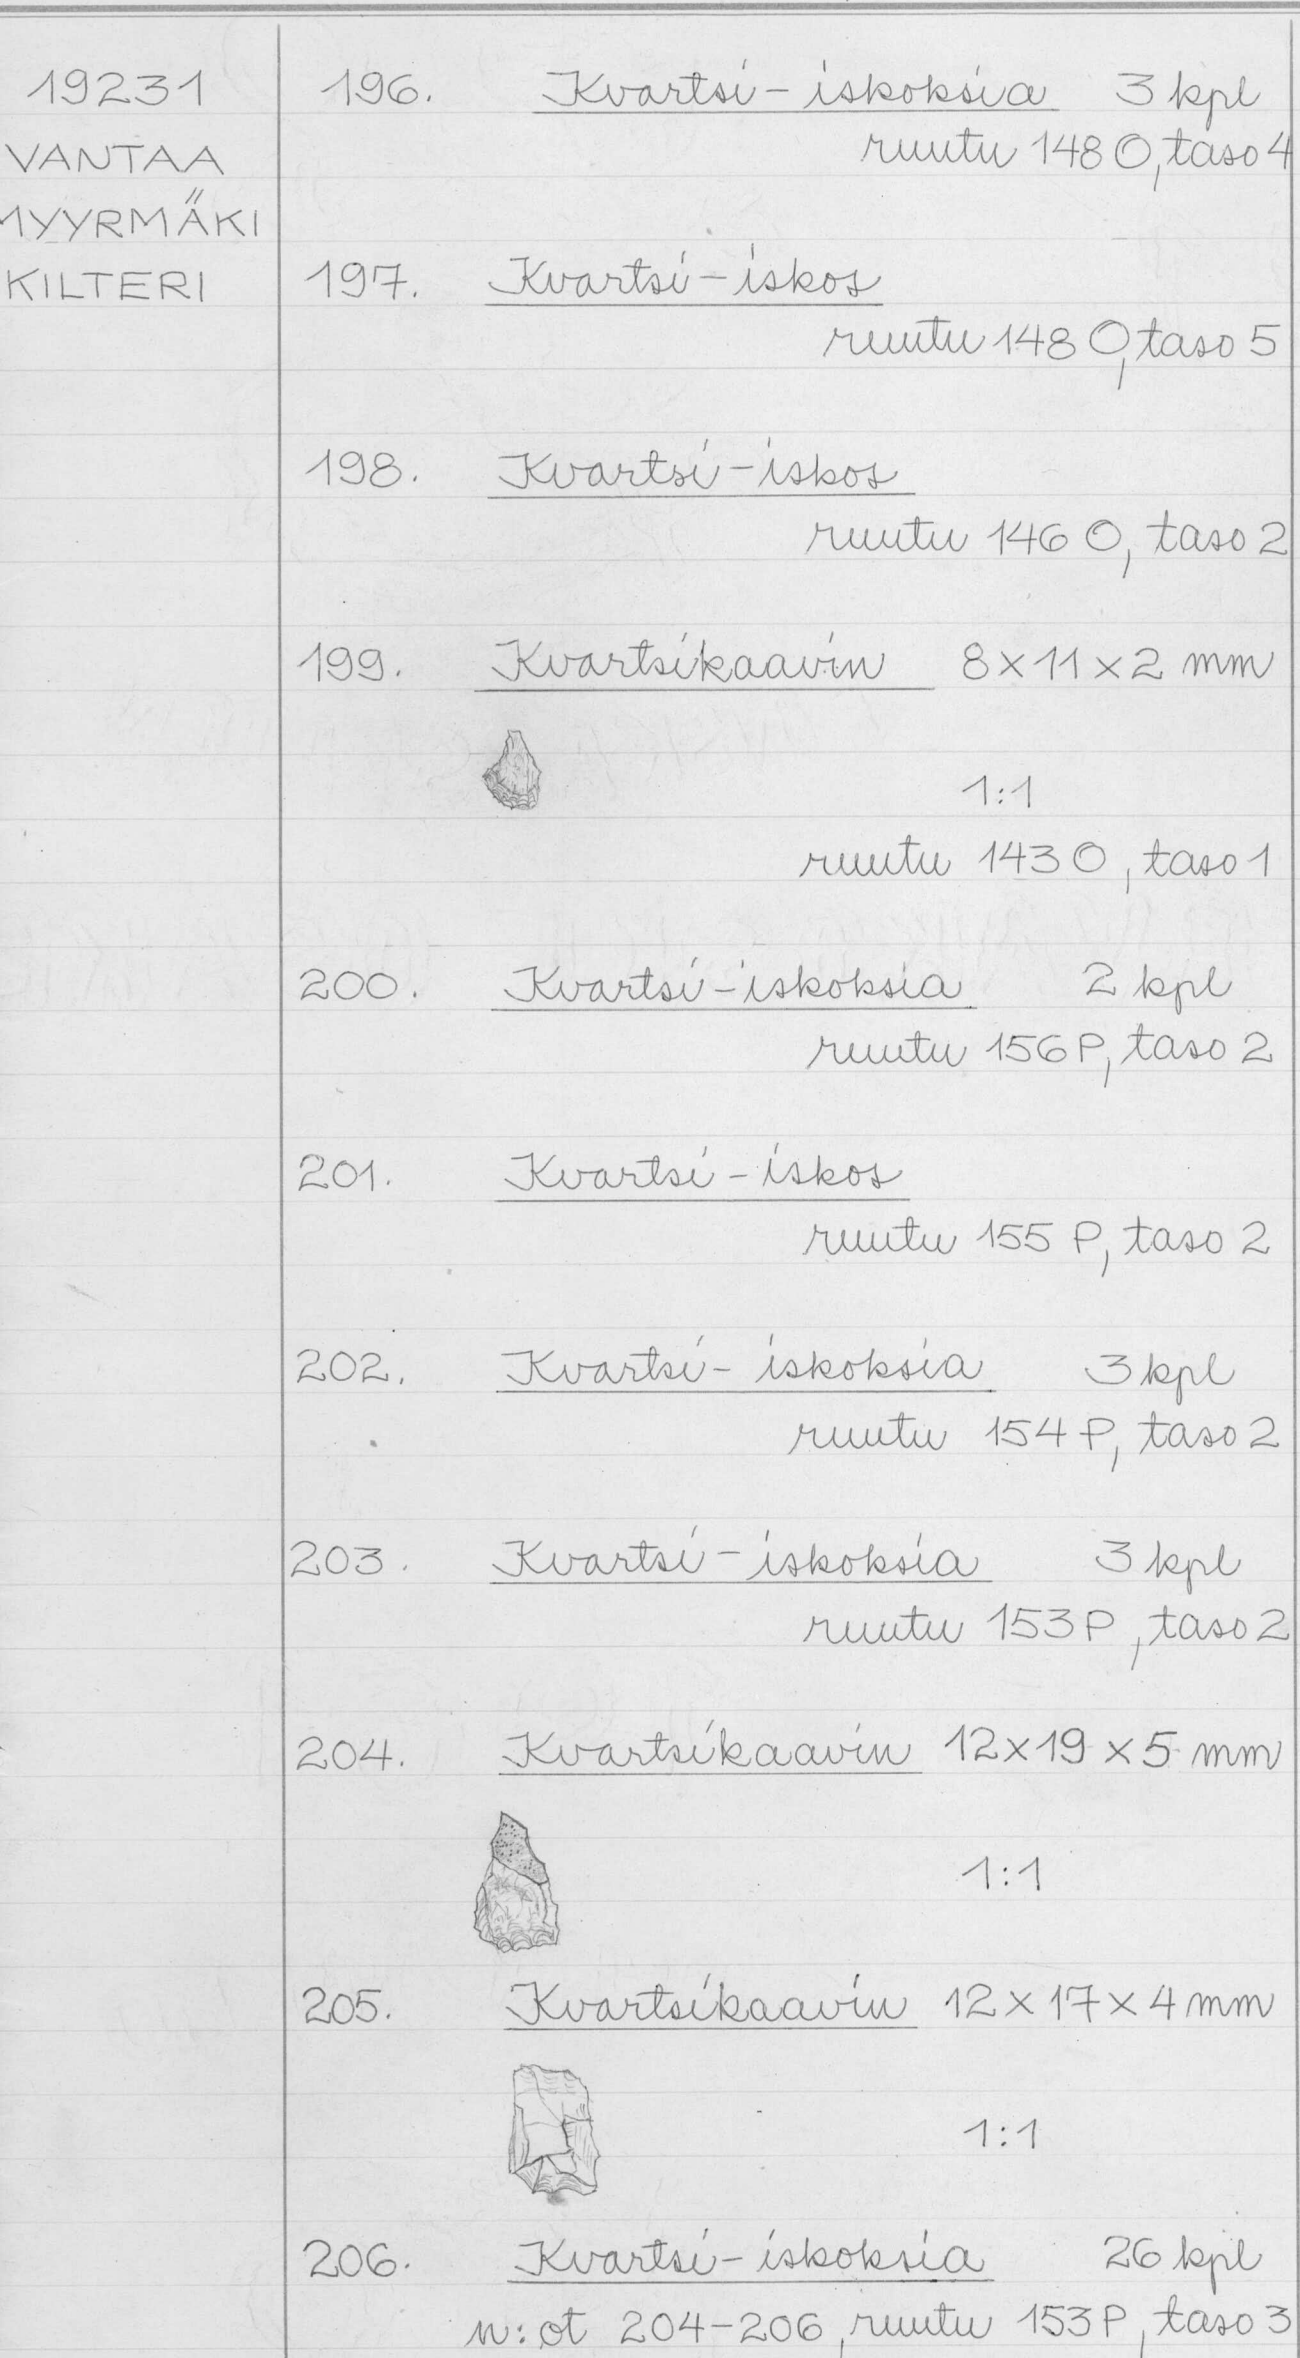 19231
VANTAA
MYYRMÄKI
KILTERI
196. Kvartsi-iskoksia 3 kpl
ruutu 148 O, taso 4
197. Kvartsi-iskos
ruutu 148 O, taso 5
198. Kvartsi-iskos
ruutu 146 O, taso 2
199. Kvartsikaavin 8 x 11 x 2 mm
1:1
ruutu 143 O, taso 1
200. Kvartsi-iskoksia 2 kpl
ruutu 156 P, taso 2
201. Kvartsi-iskos
ruutu 155 P, taso 2
202. Kvartsi-iskoksia 3 kpl
ruutu 154 P, taso 2
203. Kvartsi-iskoksia 3 kpl
ruutu 153 P, taso 2
204. Kvartsikaavin 12 x 19 x 5 mm
1:1
205. Kvartsikaavin 12 x 17 x 4 mm
1:1
206. Kvartsi-iskoksia 26 kpl
n:ot 204-206, ruutu 153 P, taso 3